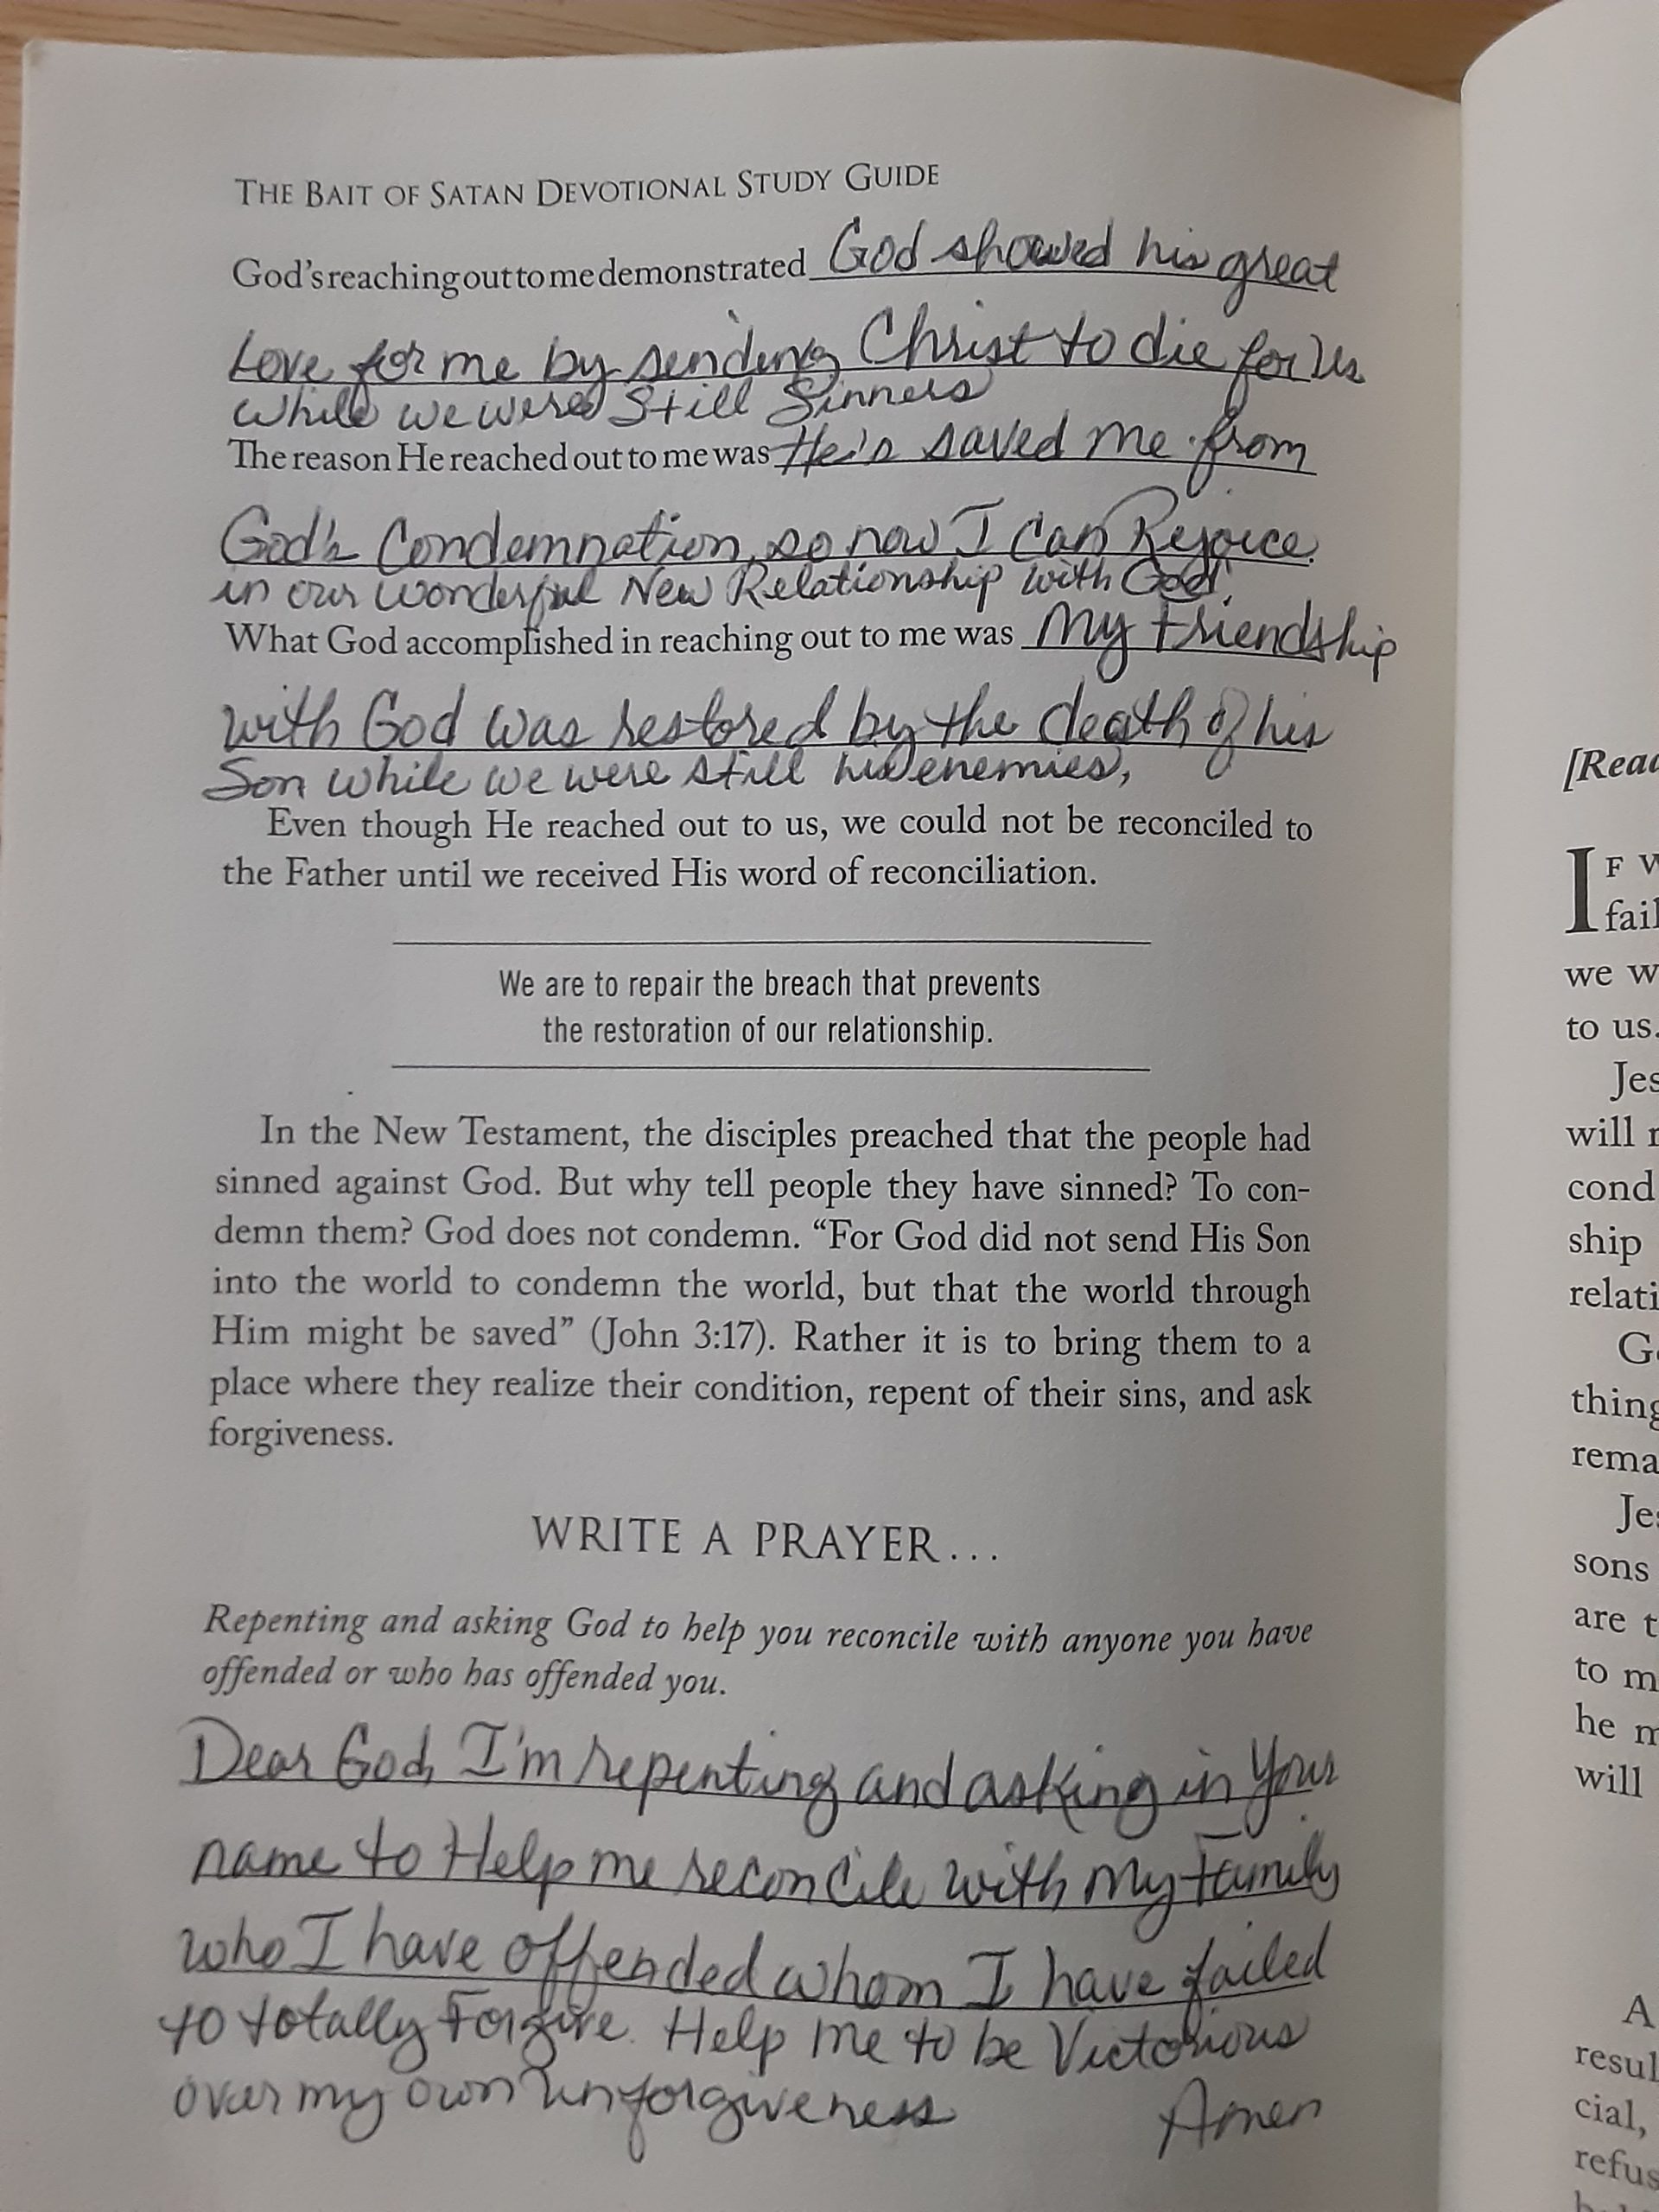 THE BAIT OF SATAN DEVOTIONAL STUDY GUIDE
God's reaching out to me demonstrated God showed his great
Love for me by sending Christ to die for Us
while we were Still Sinners
The reason He reached out to me was He's saved me from
God's Condemnation, so now I Can Rejoice
in our wonderful New Relationship with God.
What God accomplished in reaching out to me was My Friendship
with God was restored by the death of his
Son while we were still his enemies,
Even though He reached out to us, we could not be reconciled to
the Father until we received His word of reconciliation.
We are to repair the breach that prevents
the restoration of our relationship.
In the New Testament, the disciples preached that the people had
sinned against God. But why tell people they have sinned? To con-
demn them? God does not condemn. “For God did not send His Son
into the world to condemn the world, but that the world through
Him might be saved” (John 3:17). Rather it is to bring them to a
place where they realize their condition, repent of their sins, and ask
forgiveness.
WRITE A PRAYER...
Repenting and asking God to help you reconcile with anyone you have
offended or who has offended you.
Dear God, I'm repenting and asking in Your
name to Help me reconcile with My Family
who I have offended whom I have failed
to totally Forgive. Help Me to be Victorious
over my own unforgiveness Amen
[Read
IF W
fail
we w
to us.
Jes
will r
cond
ship
relati
Go
thing
rema
Jes
sons
are t
to m
he m
will
A
resul
cial,
refus